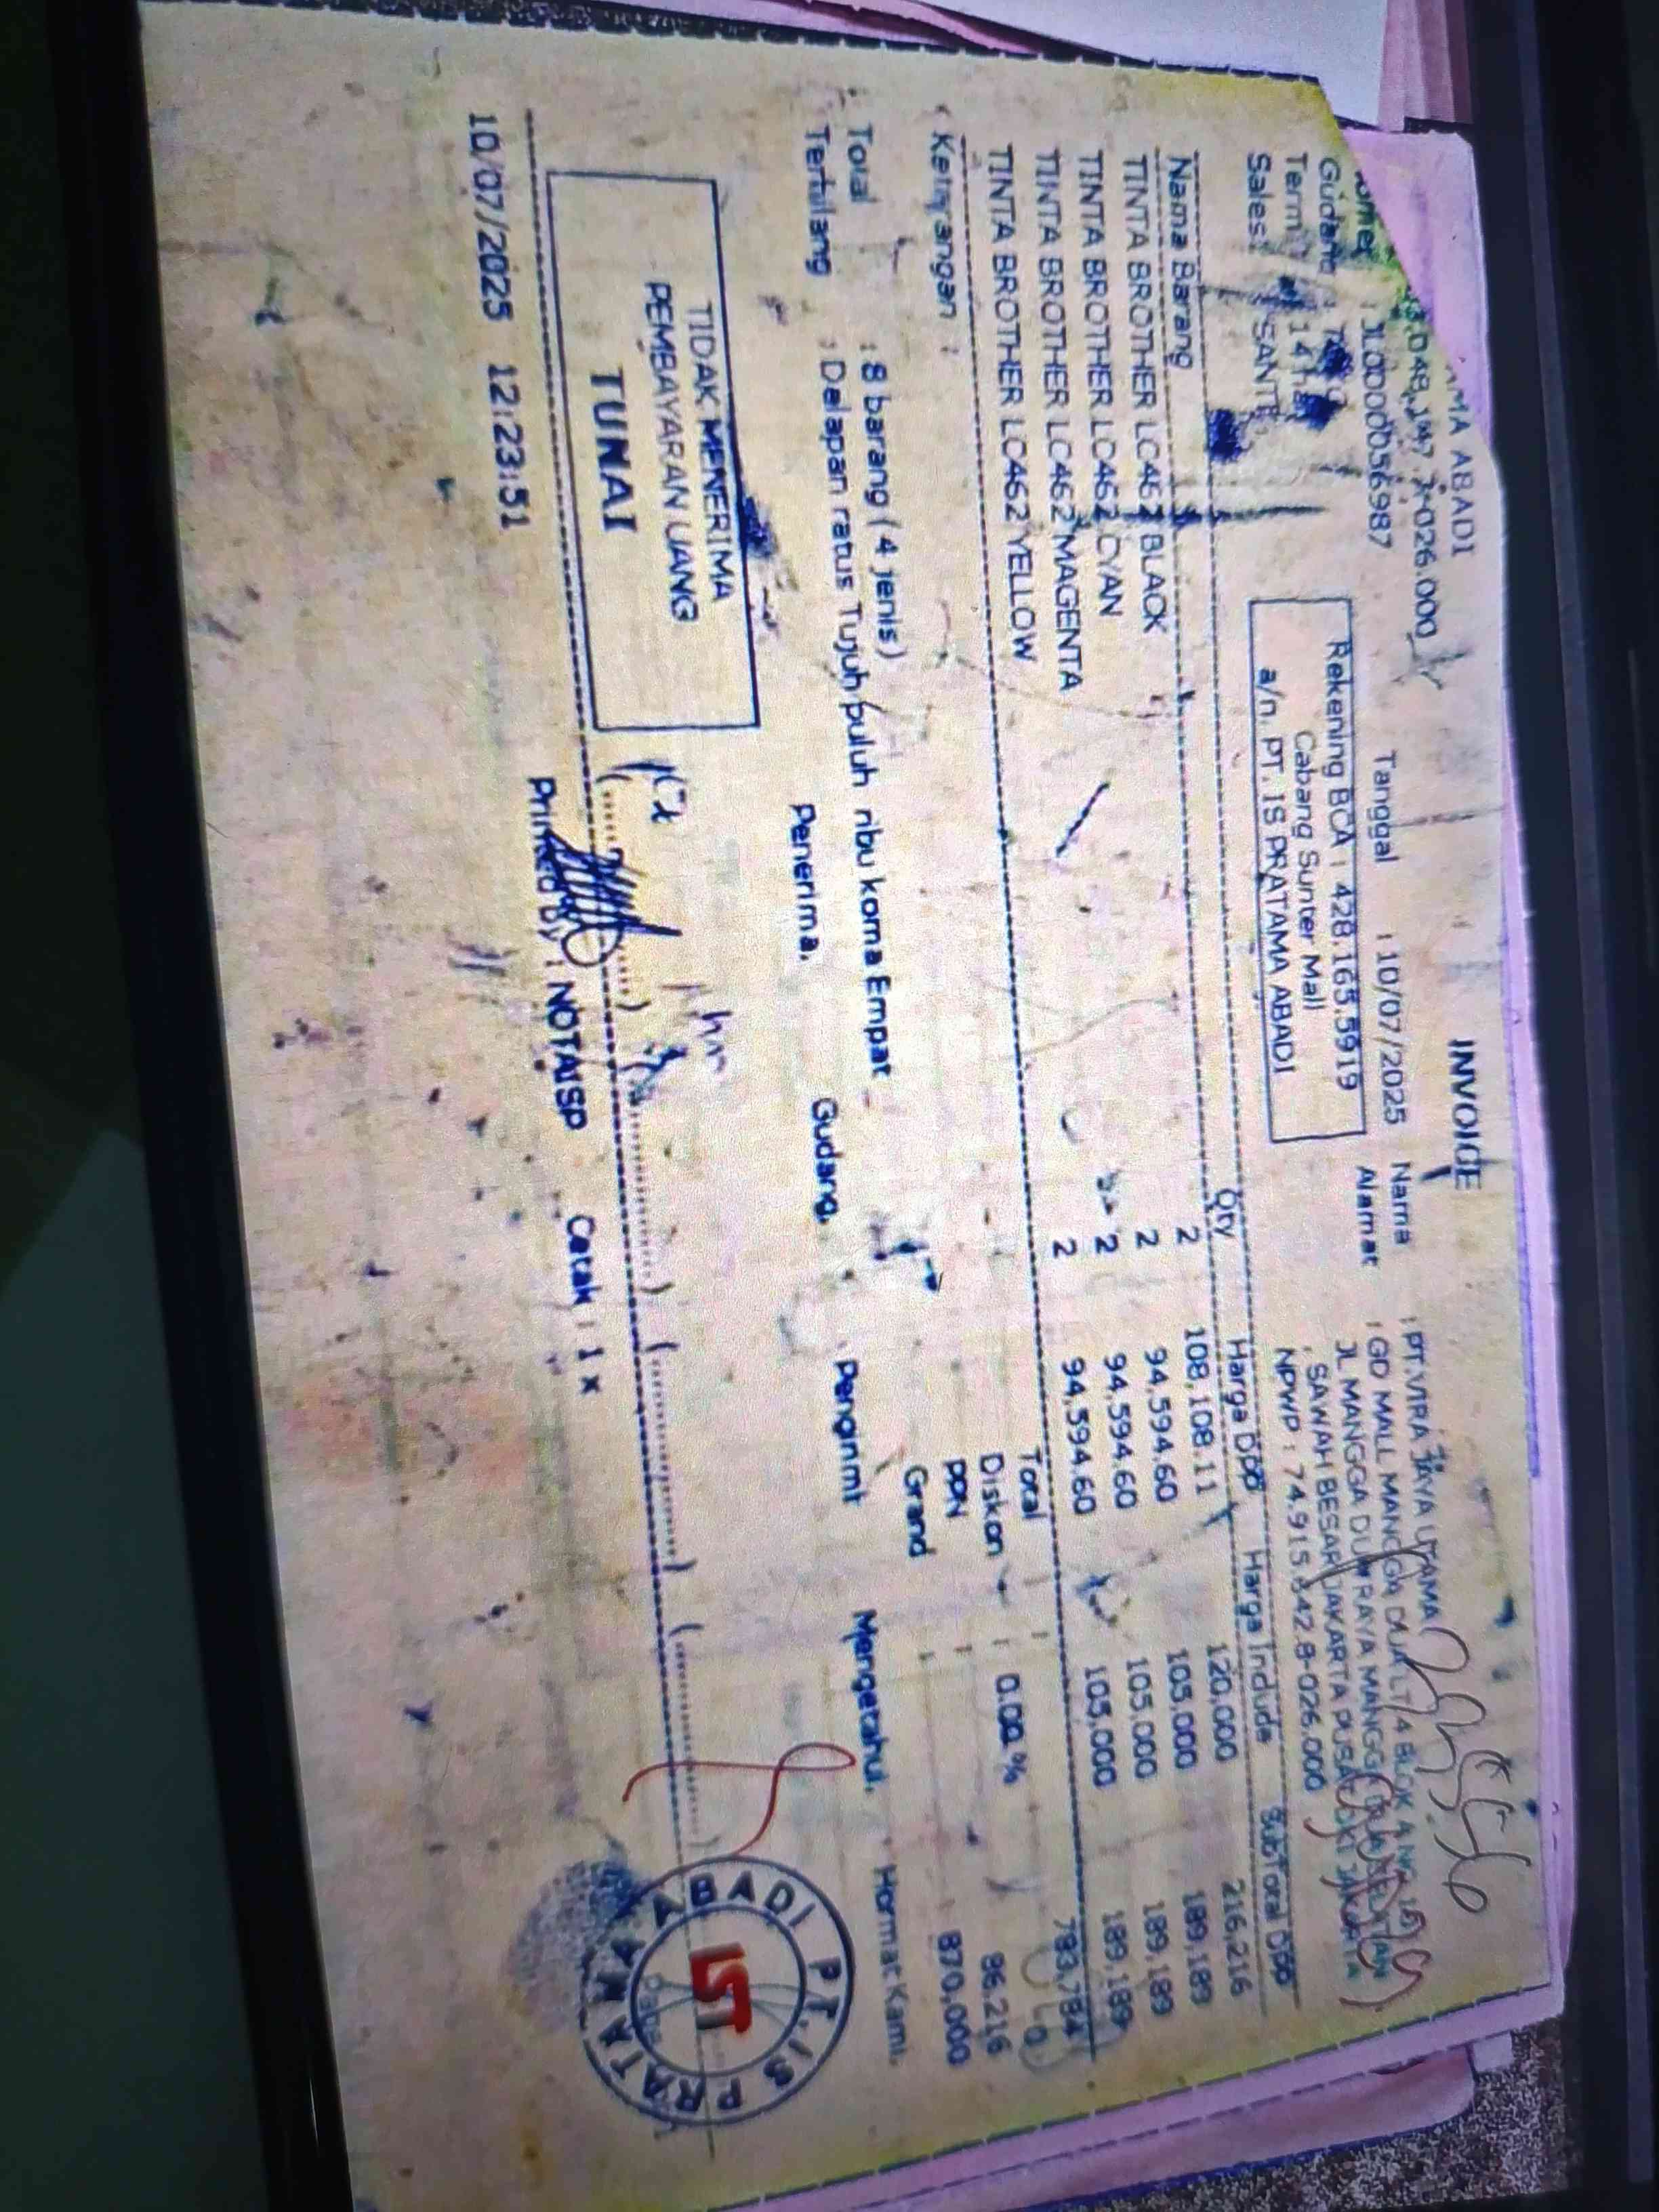 AMA ABADI
INVOICE
026.000
: JL0000056987
Tanggal : 10/07/2025
Nama : PT. VIRA JAYA UTAMA
Alamat : GD MALL MANGGA DUA LT 4 BLOK A NO
JL MANGGA DUA RAYA MANGGA DUA SELATAN
SAWAH BESAR JAKARTA PUSAT DKI JAKARTA
NPWP : 74.915.642.8-026.000
Gudang :
Term : 14 hari
Sales : SANTI
Rekening BCA : 428.165.5919
Cabang Sunter Mall
a/n. PT. IS PRATAMA ABADI
Nama Barang Qty Harga DPP Harga Include SubTotal DPP
TINTA BROTHER LC462 BLACK 2 108,108.11 120,000 216,216
TINTA BROTHER LC462 CYAN 2 94,594.60 105,000 189,189
TINTA BROTHER LC462 MAGENTA 2 94,594.60 105,000 189,189
TINTA BROTHER LC462 YELLOW 2 94,594.60 105,000 189,189
Keterangan :
Total : 783,784
Diskon : 0.00 % 0
PPN : 86,216
Grand : 870,000
Total : 8 barang ( 4 jenis )
Terbilang : Delapan ratus Tujuh puluh ribu koma Empat
Penerima, Gudang, Pengirim Mengetahui, Hormat Kami,
TIDAK MENERIMA
PEMBAYARAN UANG
TUNAI
PT. IS PRATAMA ABADI
10/07/2025 12:23:51 Printed By : NOTAISP Cetak : 1 x